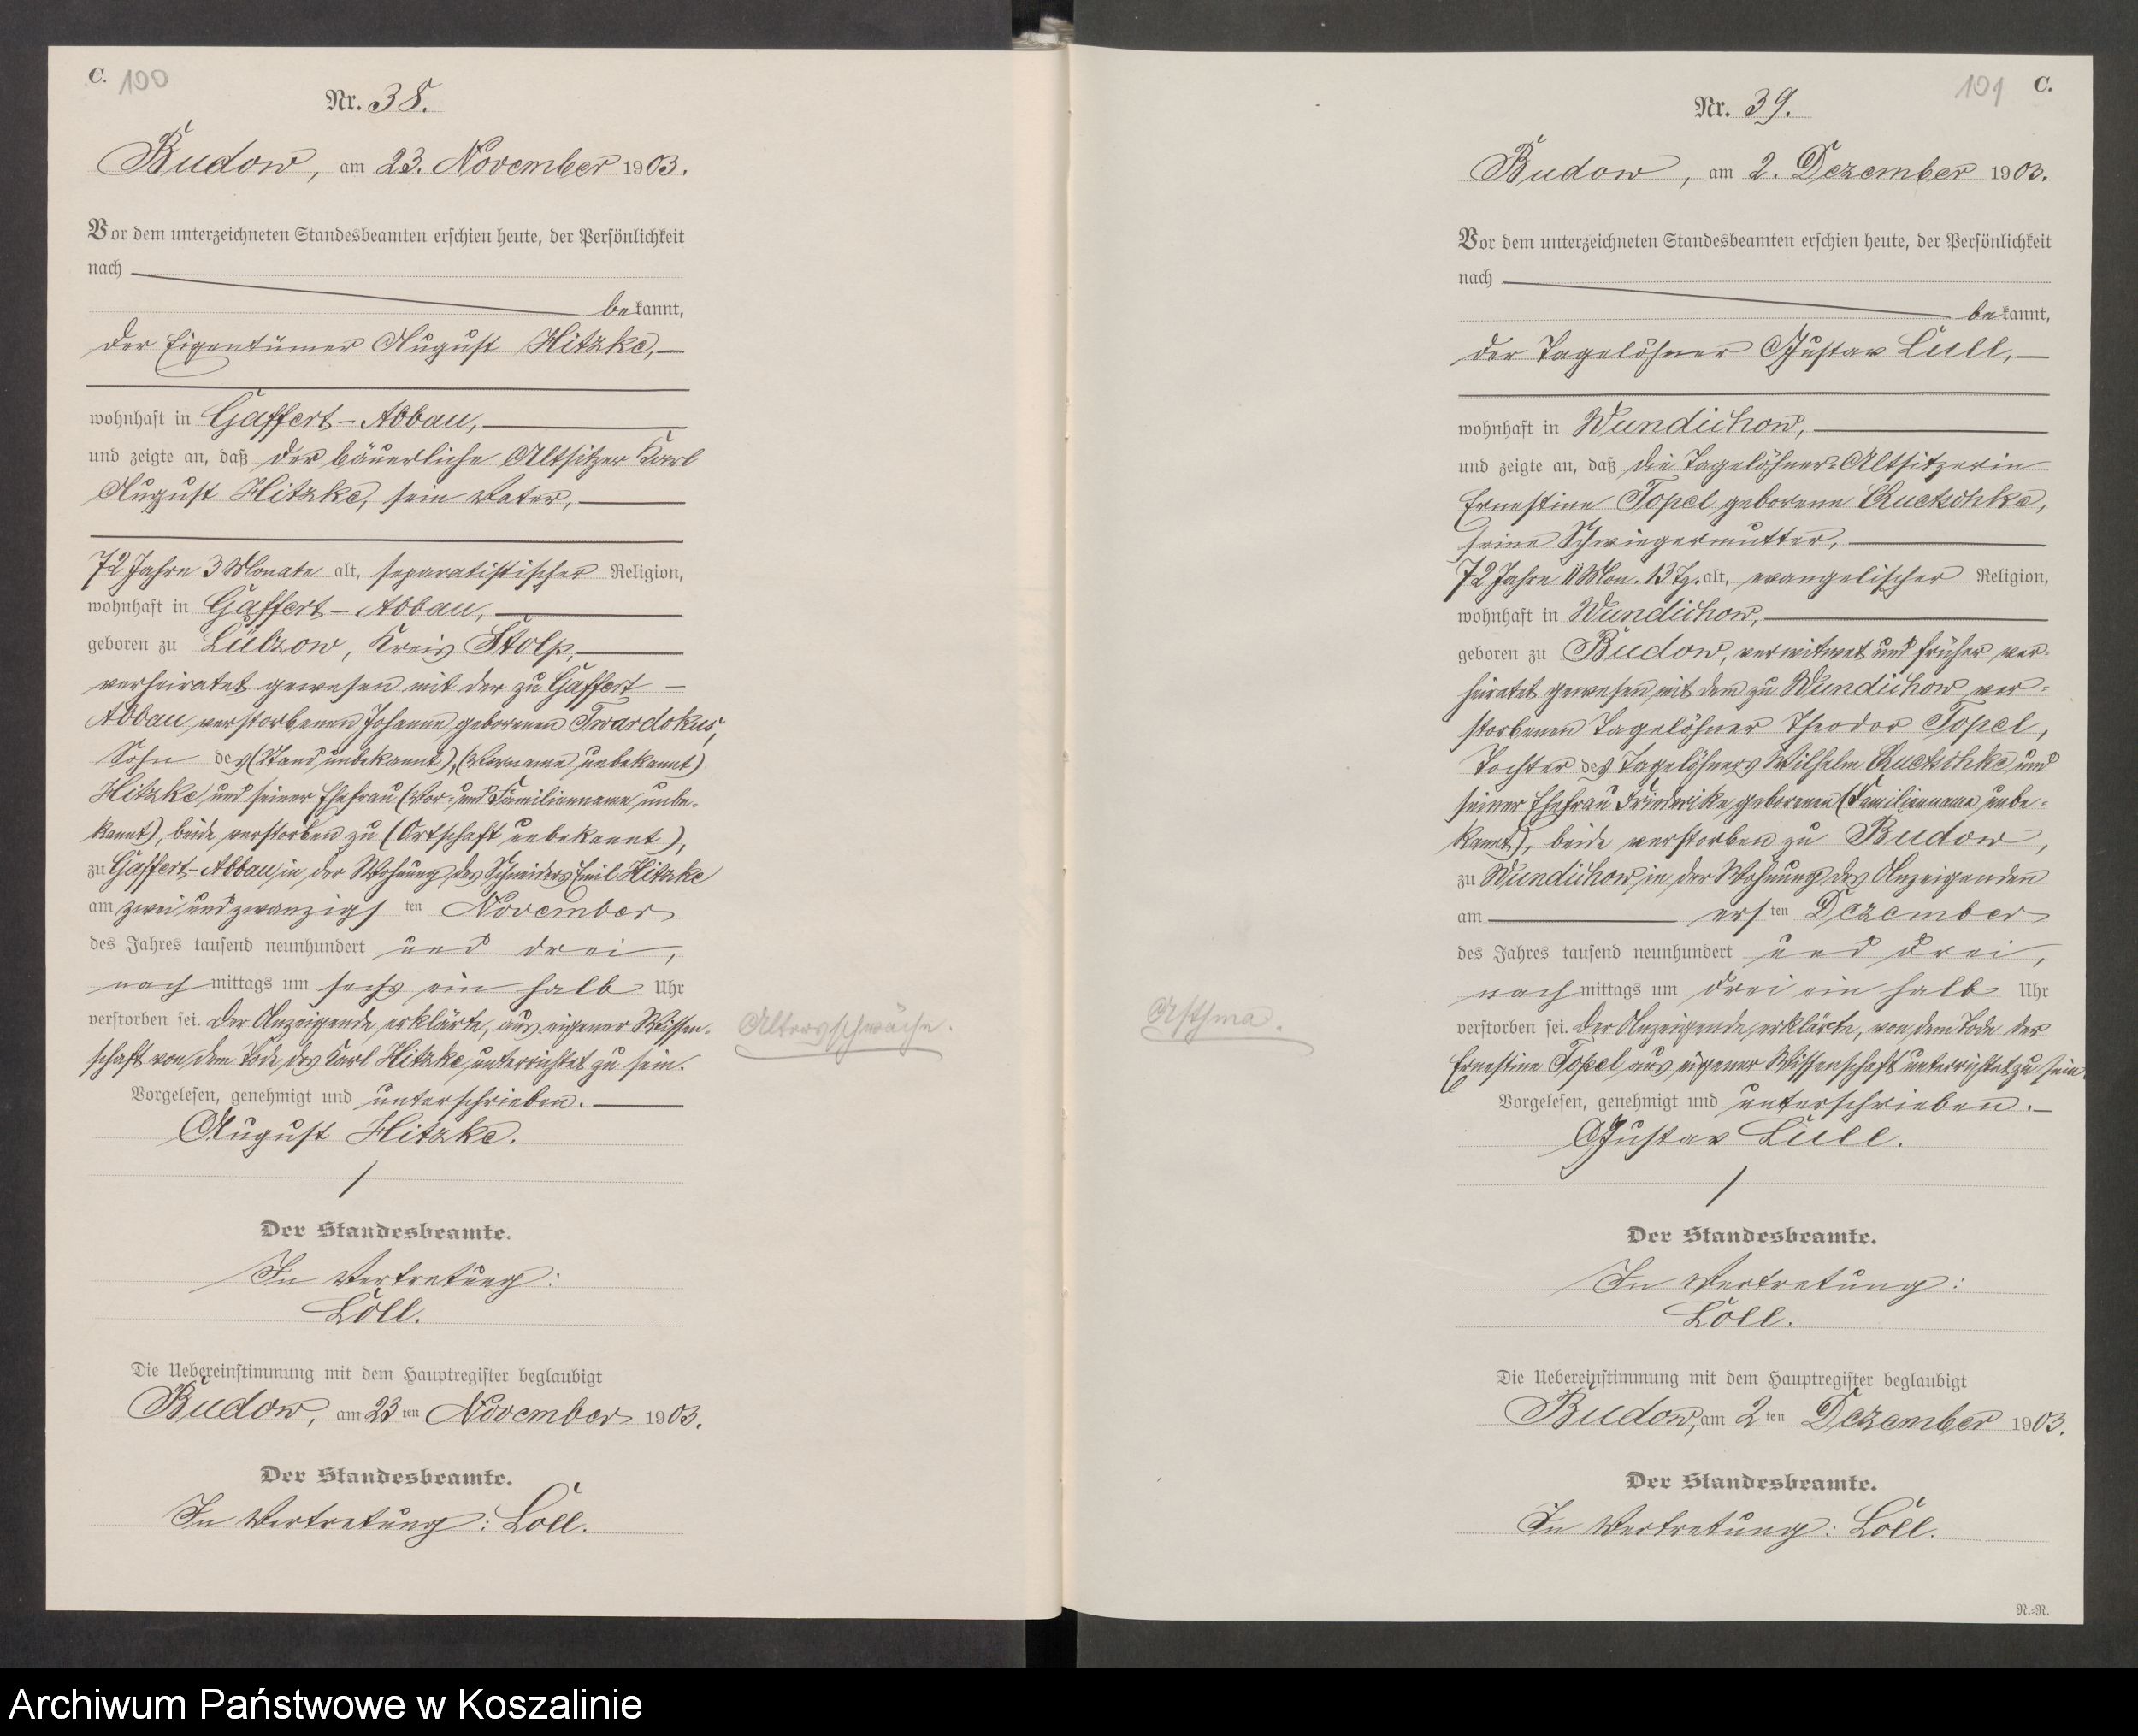 C. 100
Nr. 38.
Budow, am 23. November 1903.
Vor dem unterzeichneten Standesbeamten erschien heute, der Persönlichkeit
nach
bekannt,
der Eigentümer August Hitzke,
wohnhaft in Gaffert-Abbau,
und zeigte an, daß der bäuerliche Altsitzer Karl
August Hitzke, sein Vater,
72 Jahre 3 Monate alt, separatistischer Religion,
wohnhaft in Gaffert-Abbau,
geboren zu Lübzow, Kreis Stolp,
verheiratet gewesen mit der zu Gaffert-
Abbau verstorbenen Johanne geborenen Twardokus,
Sohn des (Stand unbekannt), (Vorname unbekannt)
Hitzke und seiner Ehefrau (Vor- und Familienname unbe-
kannt), beide verstorben zu (Ortschaft unbekannt),
zu Gaffert-Abbau, in der Wohnung des Schneiders Emil Hitzke
am zwei und zwanzigsten November
des Jahres tausend neunhundert und drei,
nachmittags um sechs ein halb Uhr
verstorben sei. Der Anzeigende erklärte, aus eigener Wissen-
schaft von dem Tode des Karl Hitzke unterrichtet zu sein.
Altersschwäche.
Vorgelesen, genehmigt und unterschrieben.
August Hitzke.
Der Standesbeamte.
In Vertretung:
Löll.
Die Uebereinstimmung mit dem Hauptregister beglaubigt
Budow, am 23ten November 1903.
Der Standesbeamte.
In Vertretung: Löll.
101 C.
Nr. 39.
Budow, am 2. Dezember 1903.
Vor dem unterzeichneten Standesbeamten erschien heute, der Persönlichkeit
nach
bekannt,
der Tagelöhner Gustav Lüll,
wohnhaft in Wundichow,
und zeigte an, daß die Tagelöhner-Altsitzerin
Ernestine Topel geborene Ruetschke,
seine Schwiegermutter,
72 Jahre 11 Mon. 13 Tg. alt, evangelischer Religion,
wohnhaft in Wundichow,
geboren zu Budow, verwitwet und früher ver-
heiratet gewesen mit dem zu Wundichow ver-
storbenen Tagelöhner Theodor Topel,
Tochter des Tagelöhners Wilhelm Ruetschke und
seiner Ehefrau Friederike geborenen (Familienname unbe-
kannt), beide verstorben zu Budow,
zu Wundichow, in der Wohnung des Anzeigenden
am ersten Dezember
des Jahres tausend neunhundert und drei,
nachmittags um drei ein halb Uhr
verstorben sei. Der Anzeigende erklärte, von dem Tode der
Asthma.
Ernestine Topel aus eigener Wissenschaft unterrichtet zu sein.
Vorgelesen, genehmigt und unterschrieben.
Gustav Lüll.
Der Standesbeamte.
In Vertretung:
Löll.
Die Uebereinstimmung mit dem Hauptregister beglaubigt
Budow, am 2ten Dezember 1903.
Der Standesbeamte.
In Vertretung: Löll.
N.-N.
Archiwum Państwowe w Koszalinie